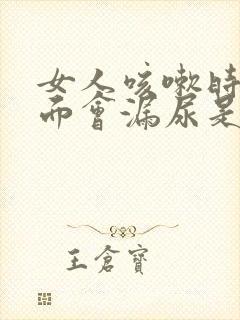 女人咳嗽时
而會漏尿是
王倉寶